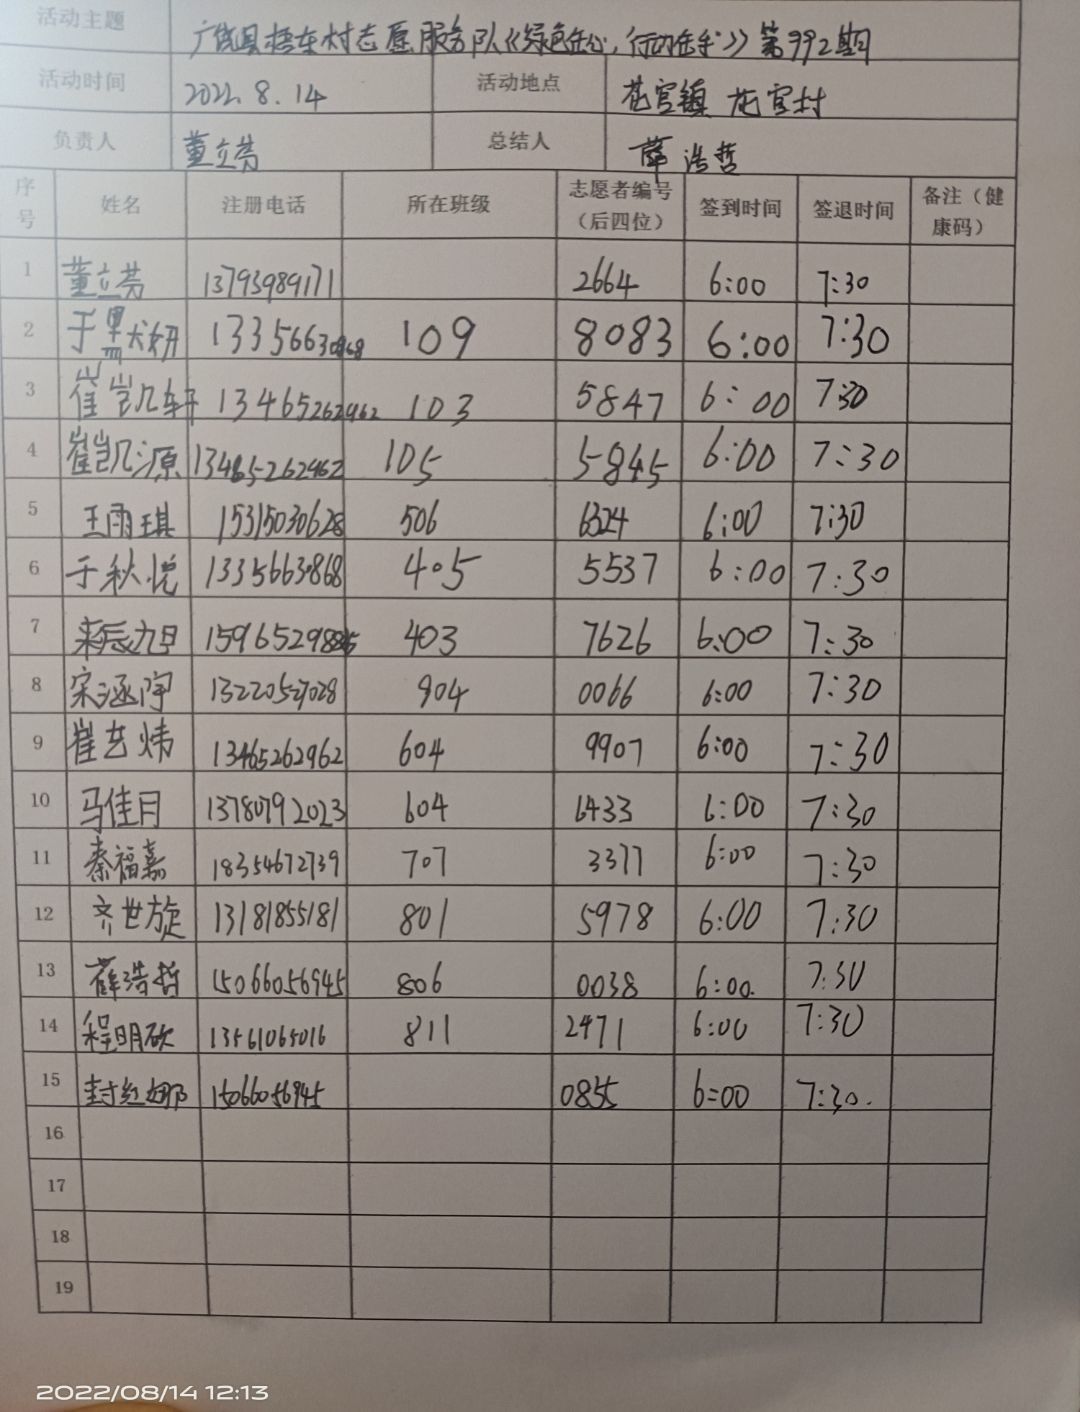 活动主题 广饶县梧车村志愿服务队《绿色在心，行动在手》第992期
活动时间 2022.8.14 活动地点 花官镇 花官村
负责人 董立芬 总结人 薛浩哲
序号 姓名 注册电话 所在班级 志愿者编号（后四位） 签到时间 签退时间 备注（健康码）
1 董立芬 13793989171 2664 6:00 7:30
2 于 妍 13356630868 109 8083 6:00 7:30
3 崔凯轩 13465262962 103 5847 6:00 7:30
4 崔凯源 13465262962 105 5845 6:00 7:30
5 王雨琪 15315030628 506 6324 6:00 7:30
6 于秋悦 13356630868 405 5537 6:00 7:30
7 403 7626 6:00 7:30
8 宋涵 13220527028 904 0066 6:00 7:30
9 崔艺炜 13465262962 604 9907 6:00 7:30
10 马佳月 13780792023 604 6433 6:00 7:30
11 秦福嘉 18354672739 707 3377 6:00 7:30
12 齐世旋 13181855181 801 5978 6:00 7:30
13 薛浩哲 15066056945 806 0038 6:00 7:30
14 程明 13561065016 811 2471 6:00 7:30
15 封红娜 15066056945 0855 6:00 7:30.
16
17
18
19
2022/08/14 12:13